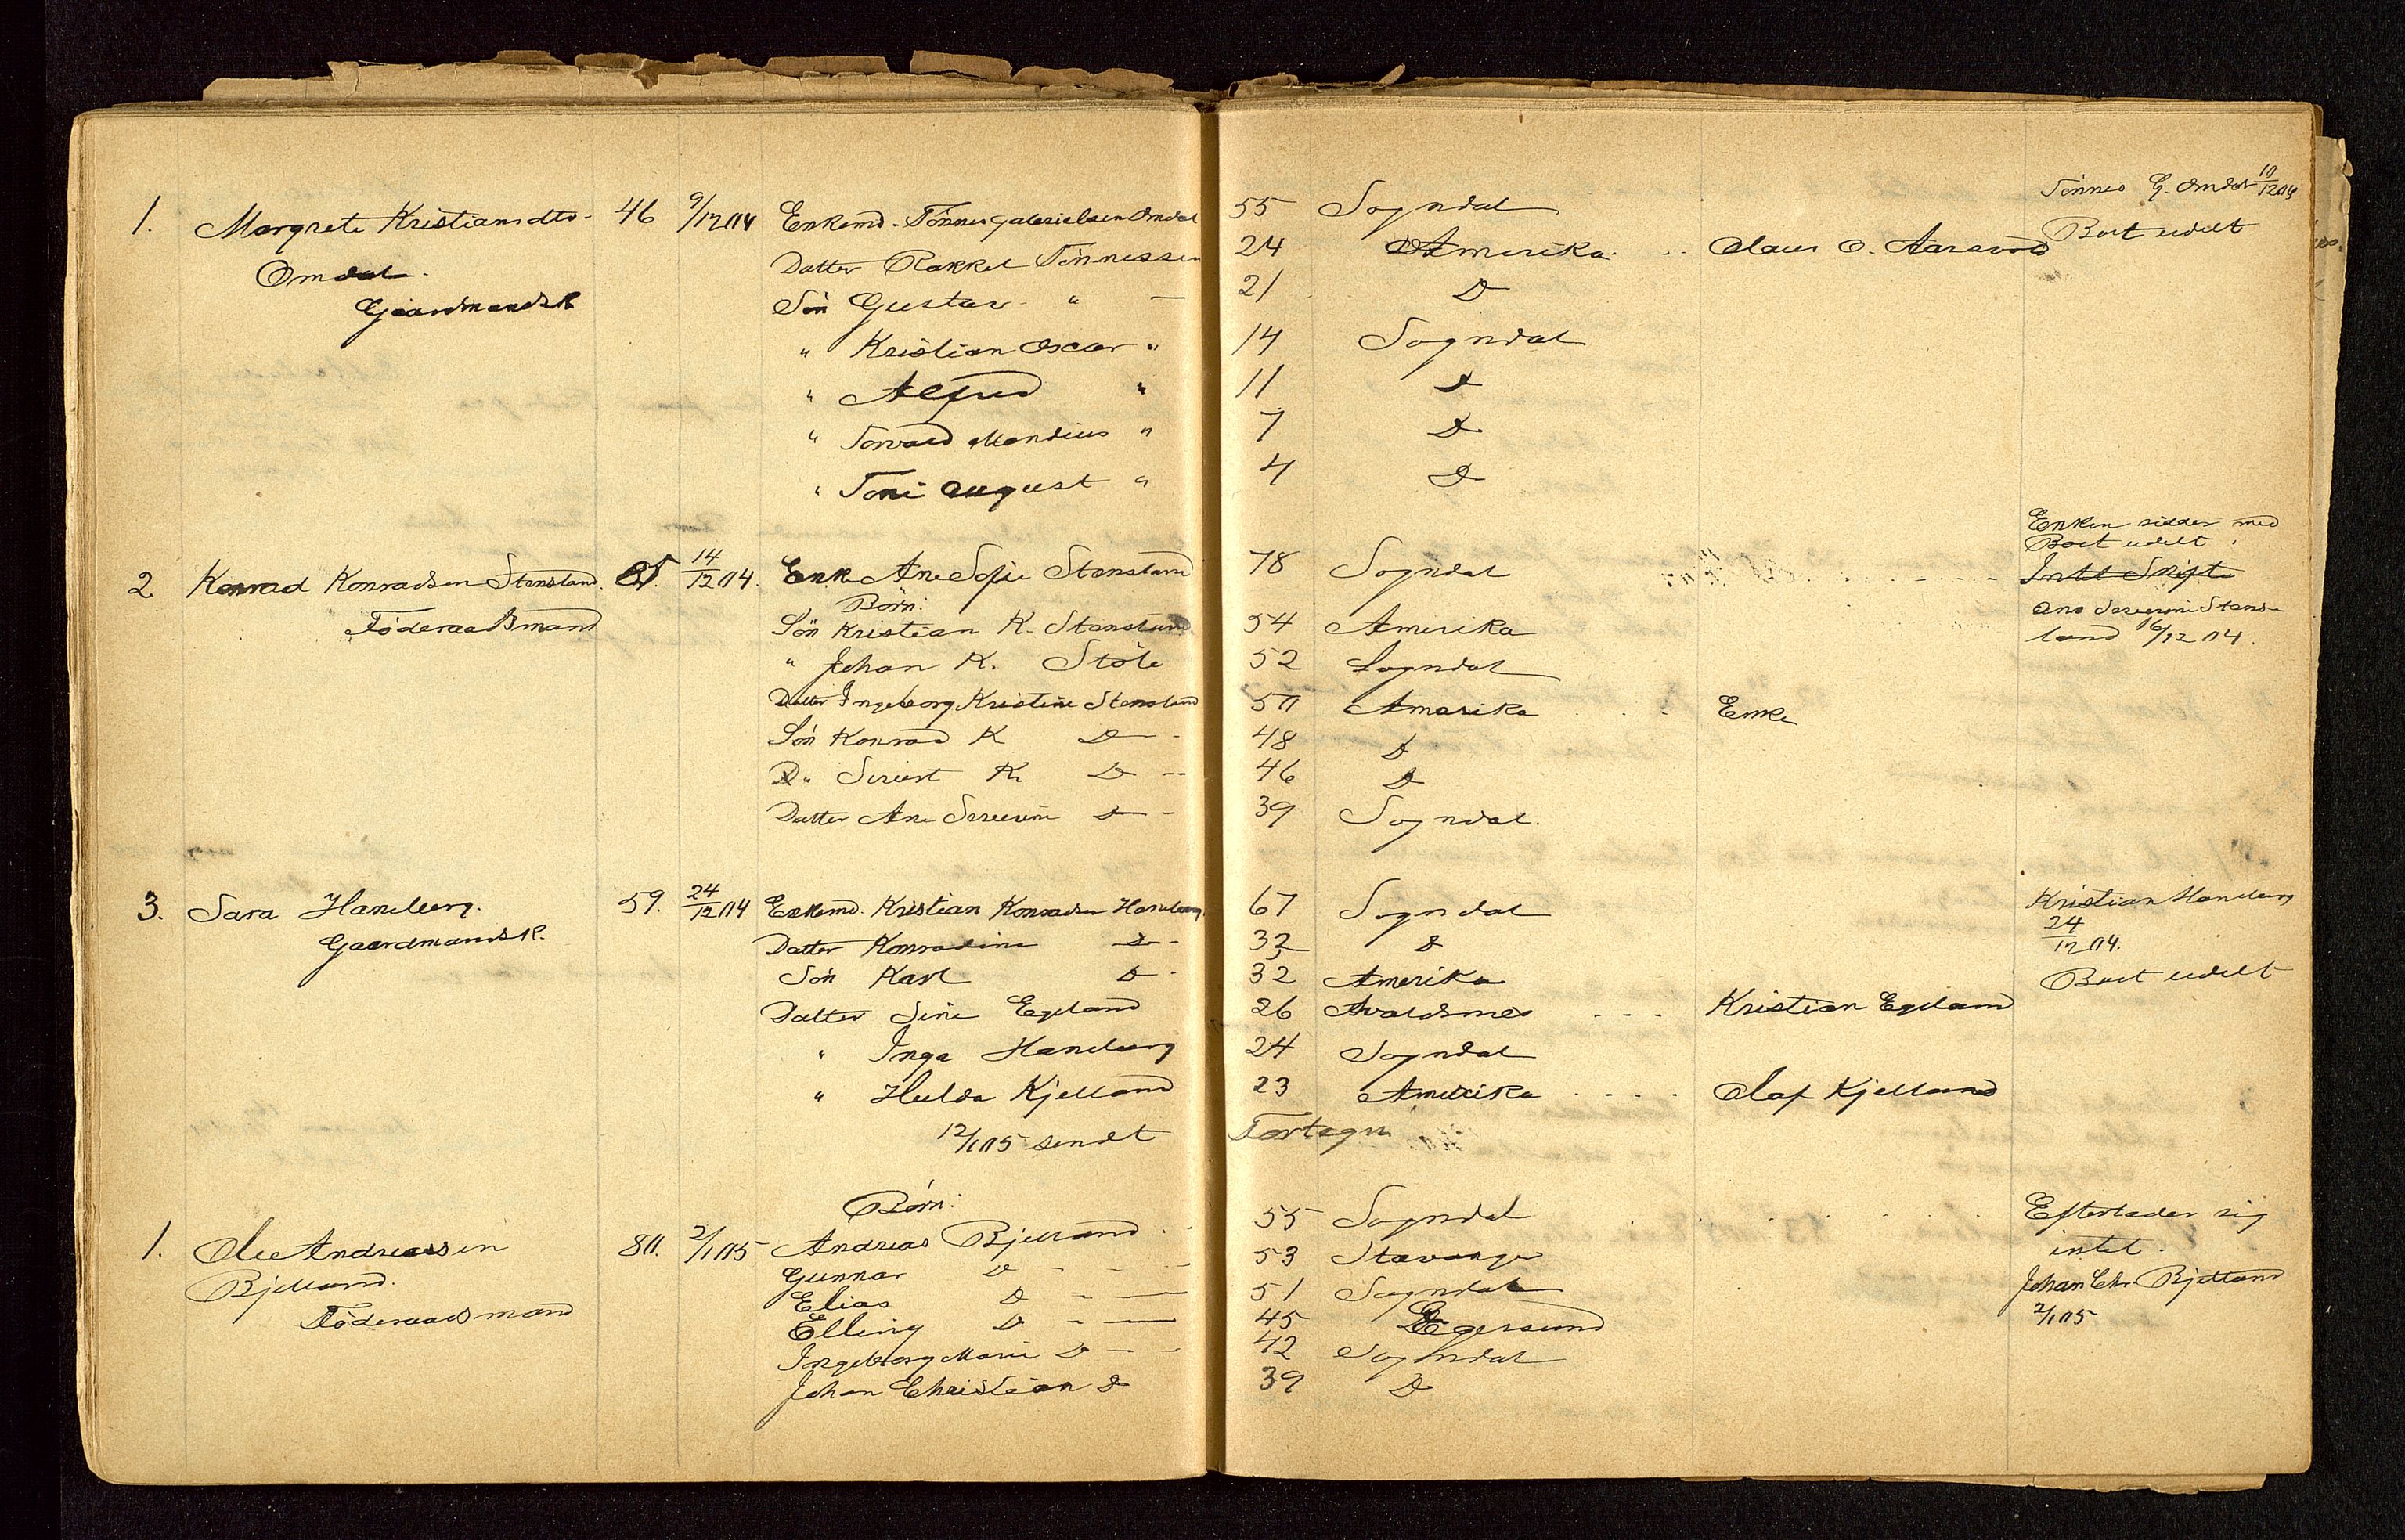 Tönnes G. Omdal 10/12 04
1. Margrete Kristiansdtr. 46 9/12 04 Enkemd. Tönnes Gabrielsen Omdal 55 Sogndal
Boet udelt
Omdal. Datter Rakkel Tönnessen 24 Amerika . . Claus O. Aarsvold
Gaardmandsk Sön Gustav " — 21 D
" Kristian Oscar " 14 Sogndal
" Alfred " 11 D
" Torvald Mandius " 7 D
" Toni August " 4 D
Enken sidder med
Boet udelt.
2. Konrad Konradsen Stensland. 85. 14/12 04. Enke Ane Sofie Stensland 78 Sogndal
Intet Skifte
Föderaadsmand Börn:
Sön Kristian K. Stensland 54 Amerika
Ane Severine Stens-
land 16/12 04.
" Johan K. Stöle 52 Sogndal
Datter Ingeborg Kristine Stensland 50 Amerika . . . Enke
Sön Konrad K D - 48 D
" Sivert K. D -- 46 D
Datter Ane Severine D - 39 Sogndal.
3. Sara Haneberg. 59. 24/12 04 Enkemd. Kristian Konradsen Haneberg 67 Sogndal Kristian Haneberg
Gaardmandsk. Datter Konradine D - 32 D 24/12 04.
Sön Karl D - 32 Amerika Boet udelt
Datter Sine Egeland 26 Avaldsnes - - - Kristian Egeland
" Inga Haneberg 24 Sogndal
" Hulda Kjelland 23 Amerika . . . . Olaf Kjelland
12/1 05 sendt Fortegn
Börn:
1. Ole Andreassen 80. 2/1 05 Andreas Bjelland 55 Sogndal Efterlader sig
Bjelland. Gunnar D - - - 53 Stavanger intet.
Elias D - — 51 Sogndal Johan Chr. Bjelland
Föderaadsmand Elling D - — 45 Egersund 2/1 05
Ingeborg Marie D - - 42 Sogndal
Johan Christian D 39 D